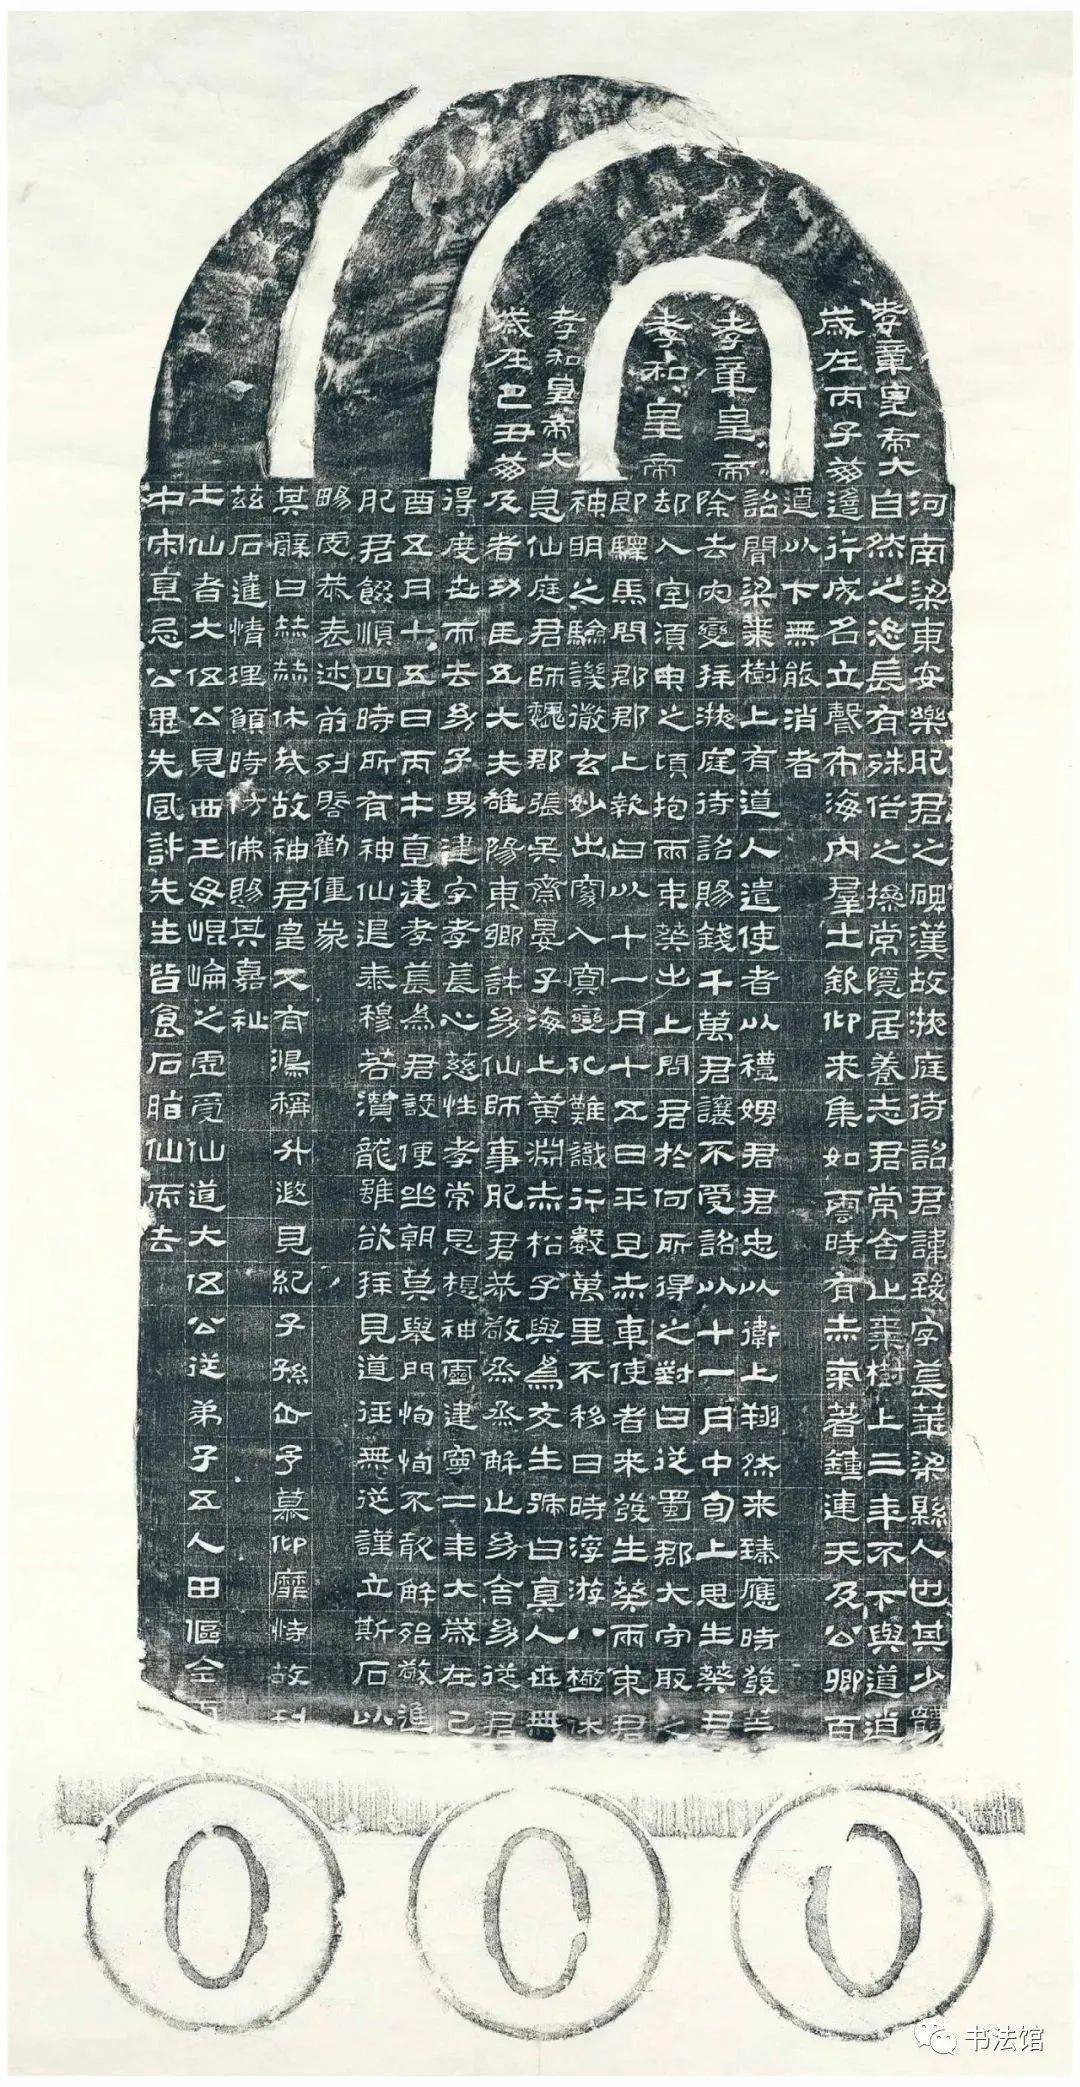 孝章皇帝大
歲在丙子崩
孝章皇帝
孝和皇帝
孝和皇帝大
歲在己丑崩
河南梁東安樂肥君之碑漢故掖庭待詔君諱致字萇華梁縣人也其少體
自然之恣長有殊俗之操常隱居養志君常舍止棗樹上三年不下與道逍
遙行成名立聲布海內羣士欽仰來集如雲時有赤氣著鍾連天及公卿百
遼以下無能消者
詔聞梁棗樹上有道人遣使者以禮娉君君忠以衛上翔然來臻應時發筭
除去灾變拜掖庭待詔賜錢千萬君讓不受詔以十一月中旬上思生葵君
却入室須臾之頃抱兩束葵出上問君於何所得之對曰從蜀郡大守取之
即驛馬問郡郡上報曰以十一月十五日平旦赤車使者來發生葵兩束君
神明之驗譏徹玄妙出窈入冥變化難識行數萬里不移日時浮游八極休
息仙庭君師魏郡張吳齋晏子海上黃淵赤松子與為友生號曰真人世無
及者功臣五大夫雒陽東鄉許幼仙師事肥君恭敬烝烝解止幼舍幼從君
得度世而去幼子男建字孝萇心慈性孝常思想神靈建寧二年大歲在己
酉五月十五日丙午直建孝萇為君設便坐朝莫舉門恂恂不敢解殆敬進
肥君餟順四時所有神仙退泰穆若潛龍雖欲拜見道徑無從謹立斯石以
暢虔恭表述前列啓勸僮蒙
其辭曰赫赫休哉故神君皇又有鴻稱升遐見紀子孫企予慕仰靡恃故刊
茲石達情理願時仿佛賜其嘉祉
土仙者大伍公見西王母崐崘之虛受仙道大伍公從弟子五人田傴全雨
中宋直忌公畢先風許先生皆食石脂仙而去
书法馆